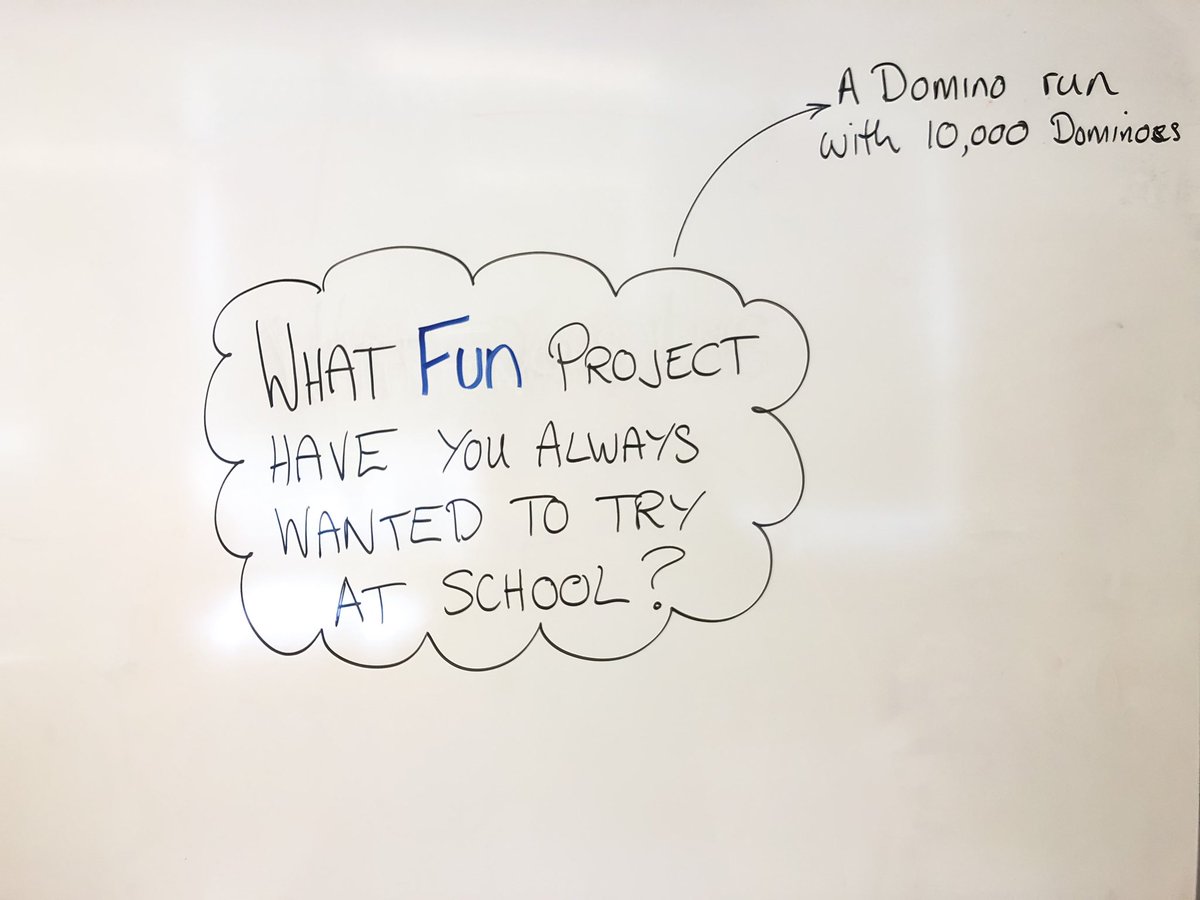 A Domino run
with 10,000 Dominoes
WHAT Fun PROJECT
HAVE YOU ALWAYS
WANTED TO TRY
AT SCHOOL?